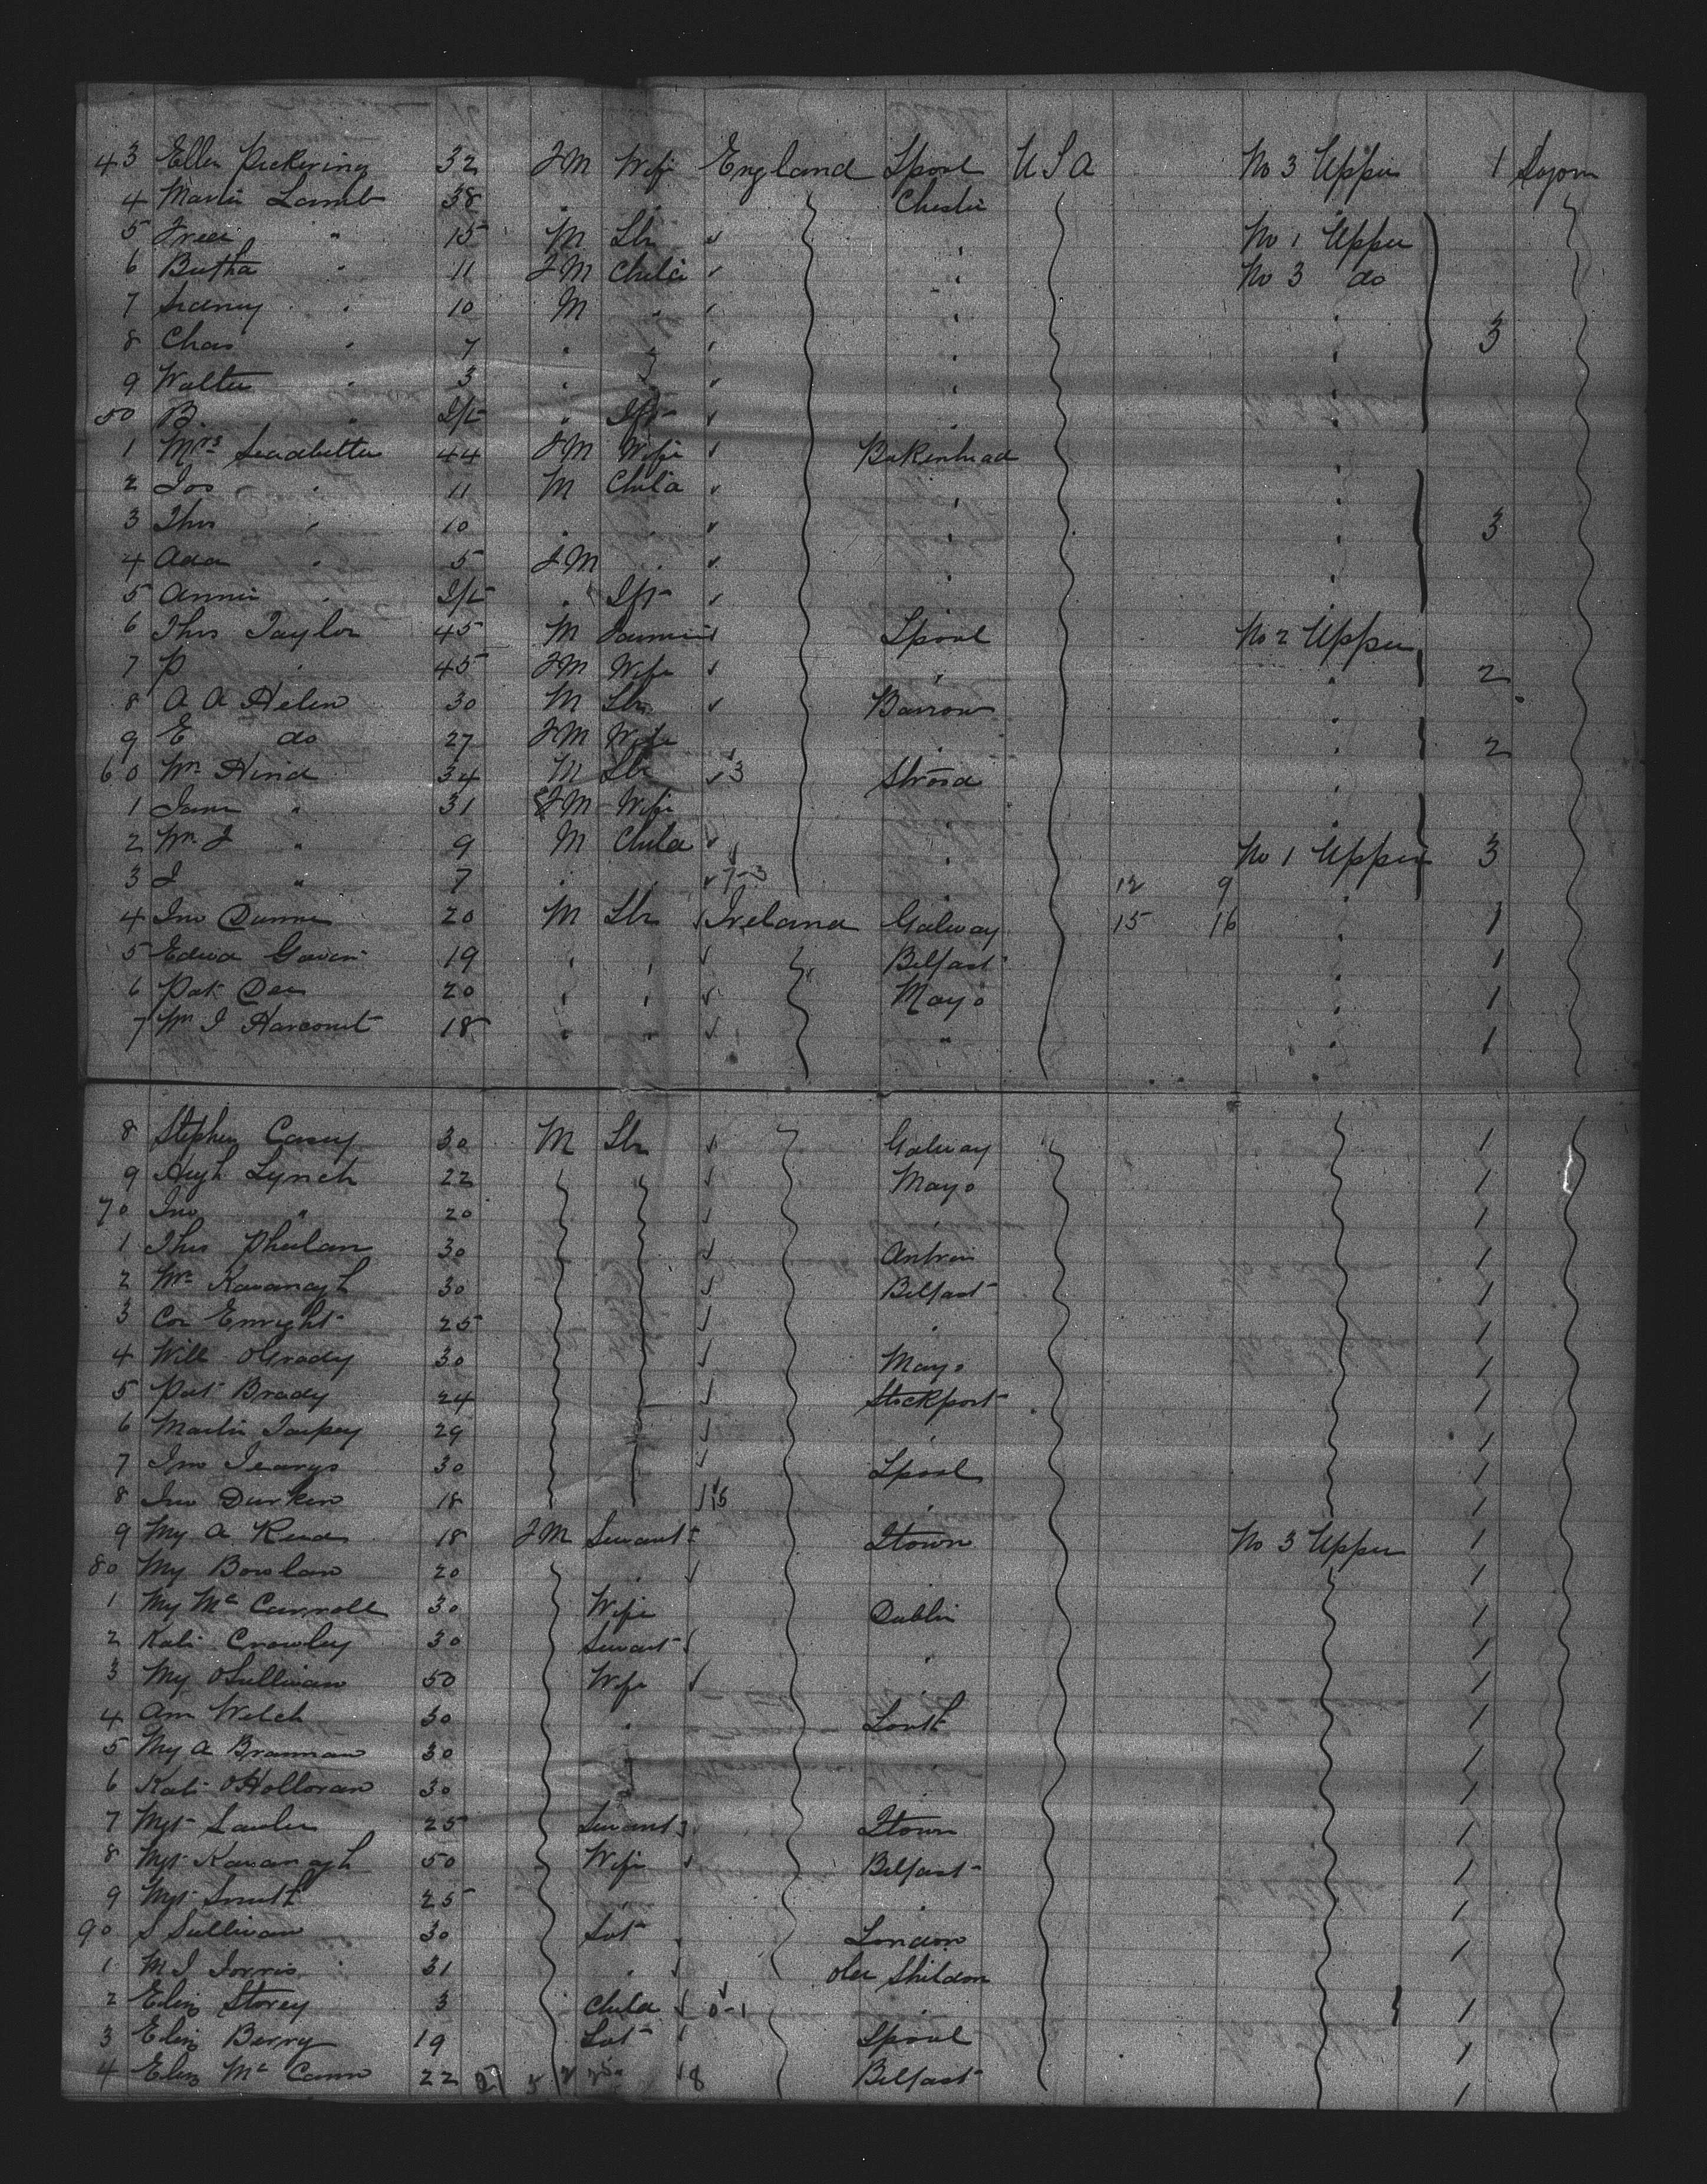 43 Ellen Pickering 32 FM Wife England Lpool U S A No 3 Upper 1 Sojorn
4 Maria Lamb 38 " " Chester
5 Fred " 15 M Lbr " No 1 Upper
6 Bertha " 11 FM Child " No 3 do
7 Sidney " 10 M " " "
8 Chas " 7 " " " " 3
9 Walter " 3 " " " "
50 B. " Inft " Inft " "
1 Mrs Leadbetter 44 FM Wife Birkenhead "
2 Jos " 11 M Child " "
3 Thos " 10 " " " " 3
4 Ada " 5 FM " " "
5 Annie " Inft " Inft "
6 Thos Taylor 45 M Lpool No 2 Upper
7 P " 45 FM Wife " " 2
8 A A Helen 30 M Lbr Barrow "
9 E do 27 FM Wife " " 2
60 Wm Hind 34 M Lbr 3 Strood
1 Jane " 31 FM Wife "
2 Wm J " 9 M Child " No 1 Upper 3
3 J " 7 " " 7-3 12 9 "
4 Jno Dunne 20 M Lbr Ireland Galway 15 16 " 1
5 Edwd Gavin 19 " " Belfast 1
6 Pat Dee 20 " " Mayo " 1
7 Wm J Harcourt 18 " " " " 1
8 Stephen Casey 30 M Lbr Galway 1
9 Hugh Lynch 22 Mayo 1
70 Jno " 20 " 1
1 Thos Phelan 30 Antrim 1
2 Wm Kavanagh 30 Belfast 1
3 Cor Enright 25 " 1
4 Will OGrady 30 Mayo 1
5 Pat Brady 24 Stockport 1
6 Martin Tarpey 29 " 1
7 Jno 30 Lpool 1
8 Jno Durken 18 15 " 1
9 My A Read 18 FM Servant Itown No 3 Upper 1
80 My Bowlan 20 " " 1
1 My Mc Carroll 30 Wife Dublin 1
2 Kate Crowley 30 Servant " 1
3 My OSullivan 50 Wife " 1
4 Ann Welch 30 " Louth 1
5 My A Brannan 30 " " 1
6 Kate OHolloran 30 " " 1
7 Mgt Lawler 25 Servant Itown 1
8 Mgt Kavanagh 50 Wife Belfast 1
9 Mgt Smith 25 " " 1
90 S Sullivan 30 Svt London 1
1 M J 31 " Old Shildon
2 Eliz Storey 3 Child 0-1 " 1
3 Eliz Berry 19 Svt Lpool 1
4 Eliz Mc Cann 22 18 Belfast 1